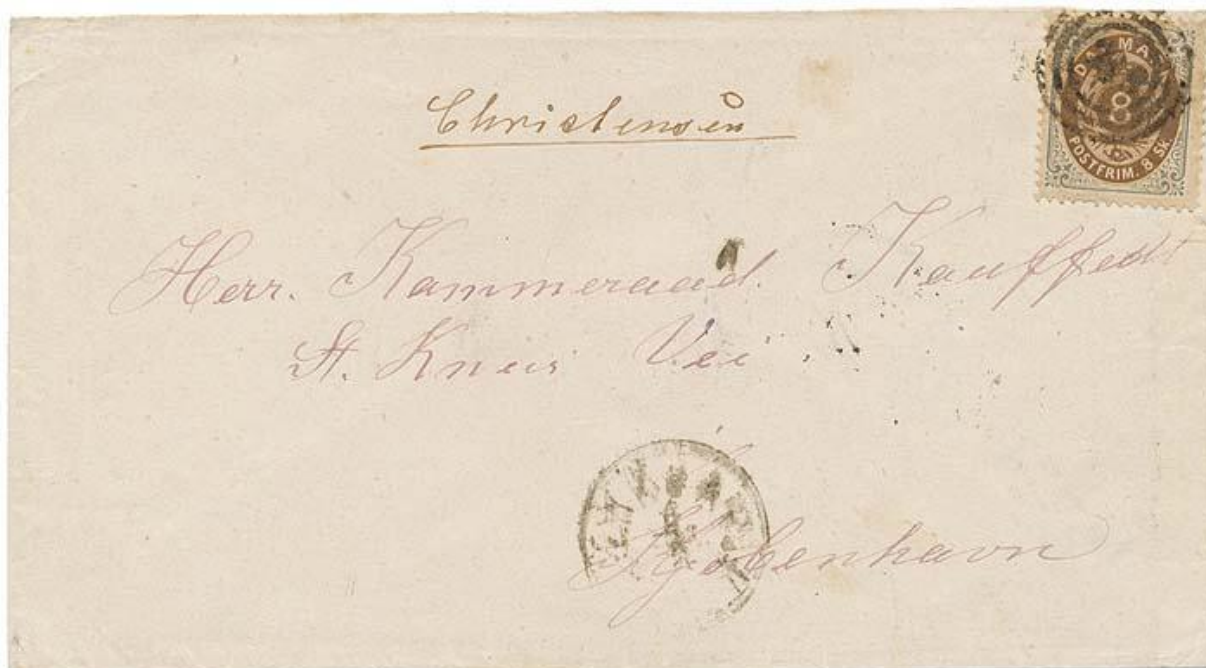 Christensen
DANMARK
8
POSTFRIM. 8 SK.
Herr. Kammeraad. Kauffeldt
St. Knuds Vei
Kjøbenhavn